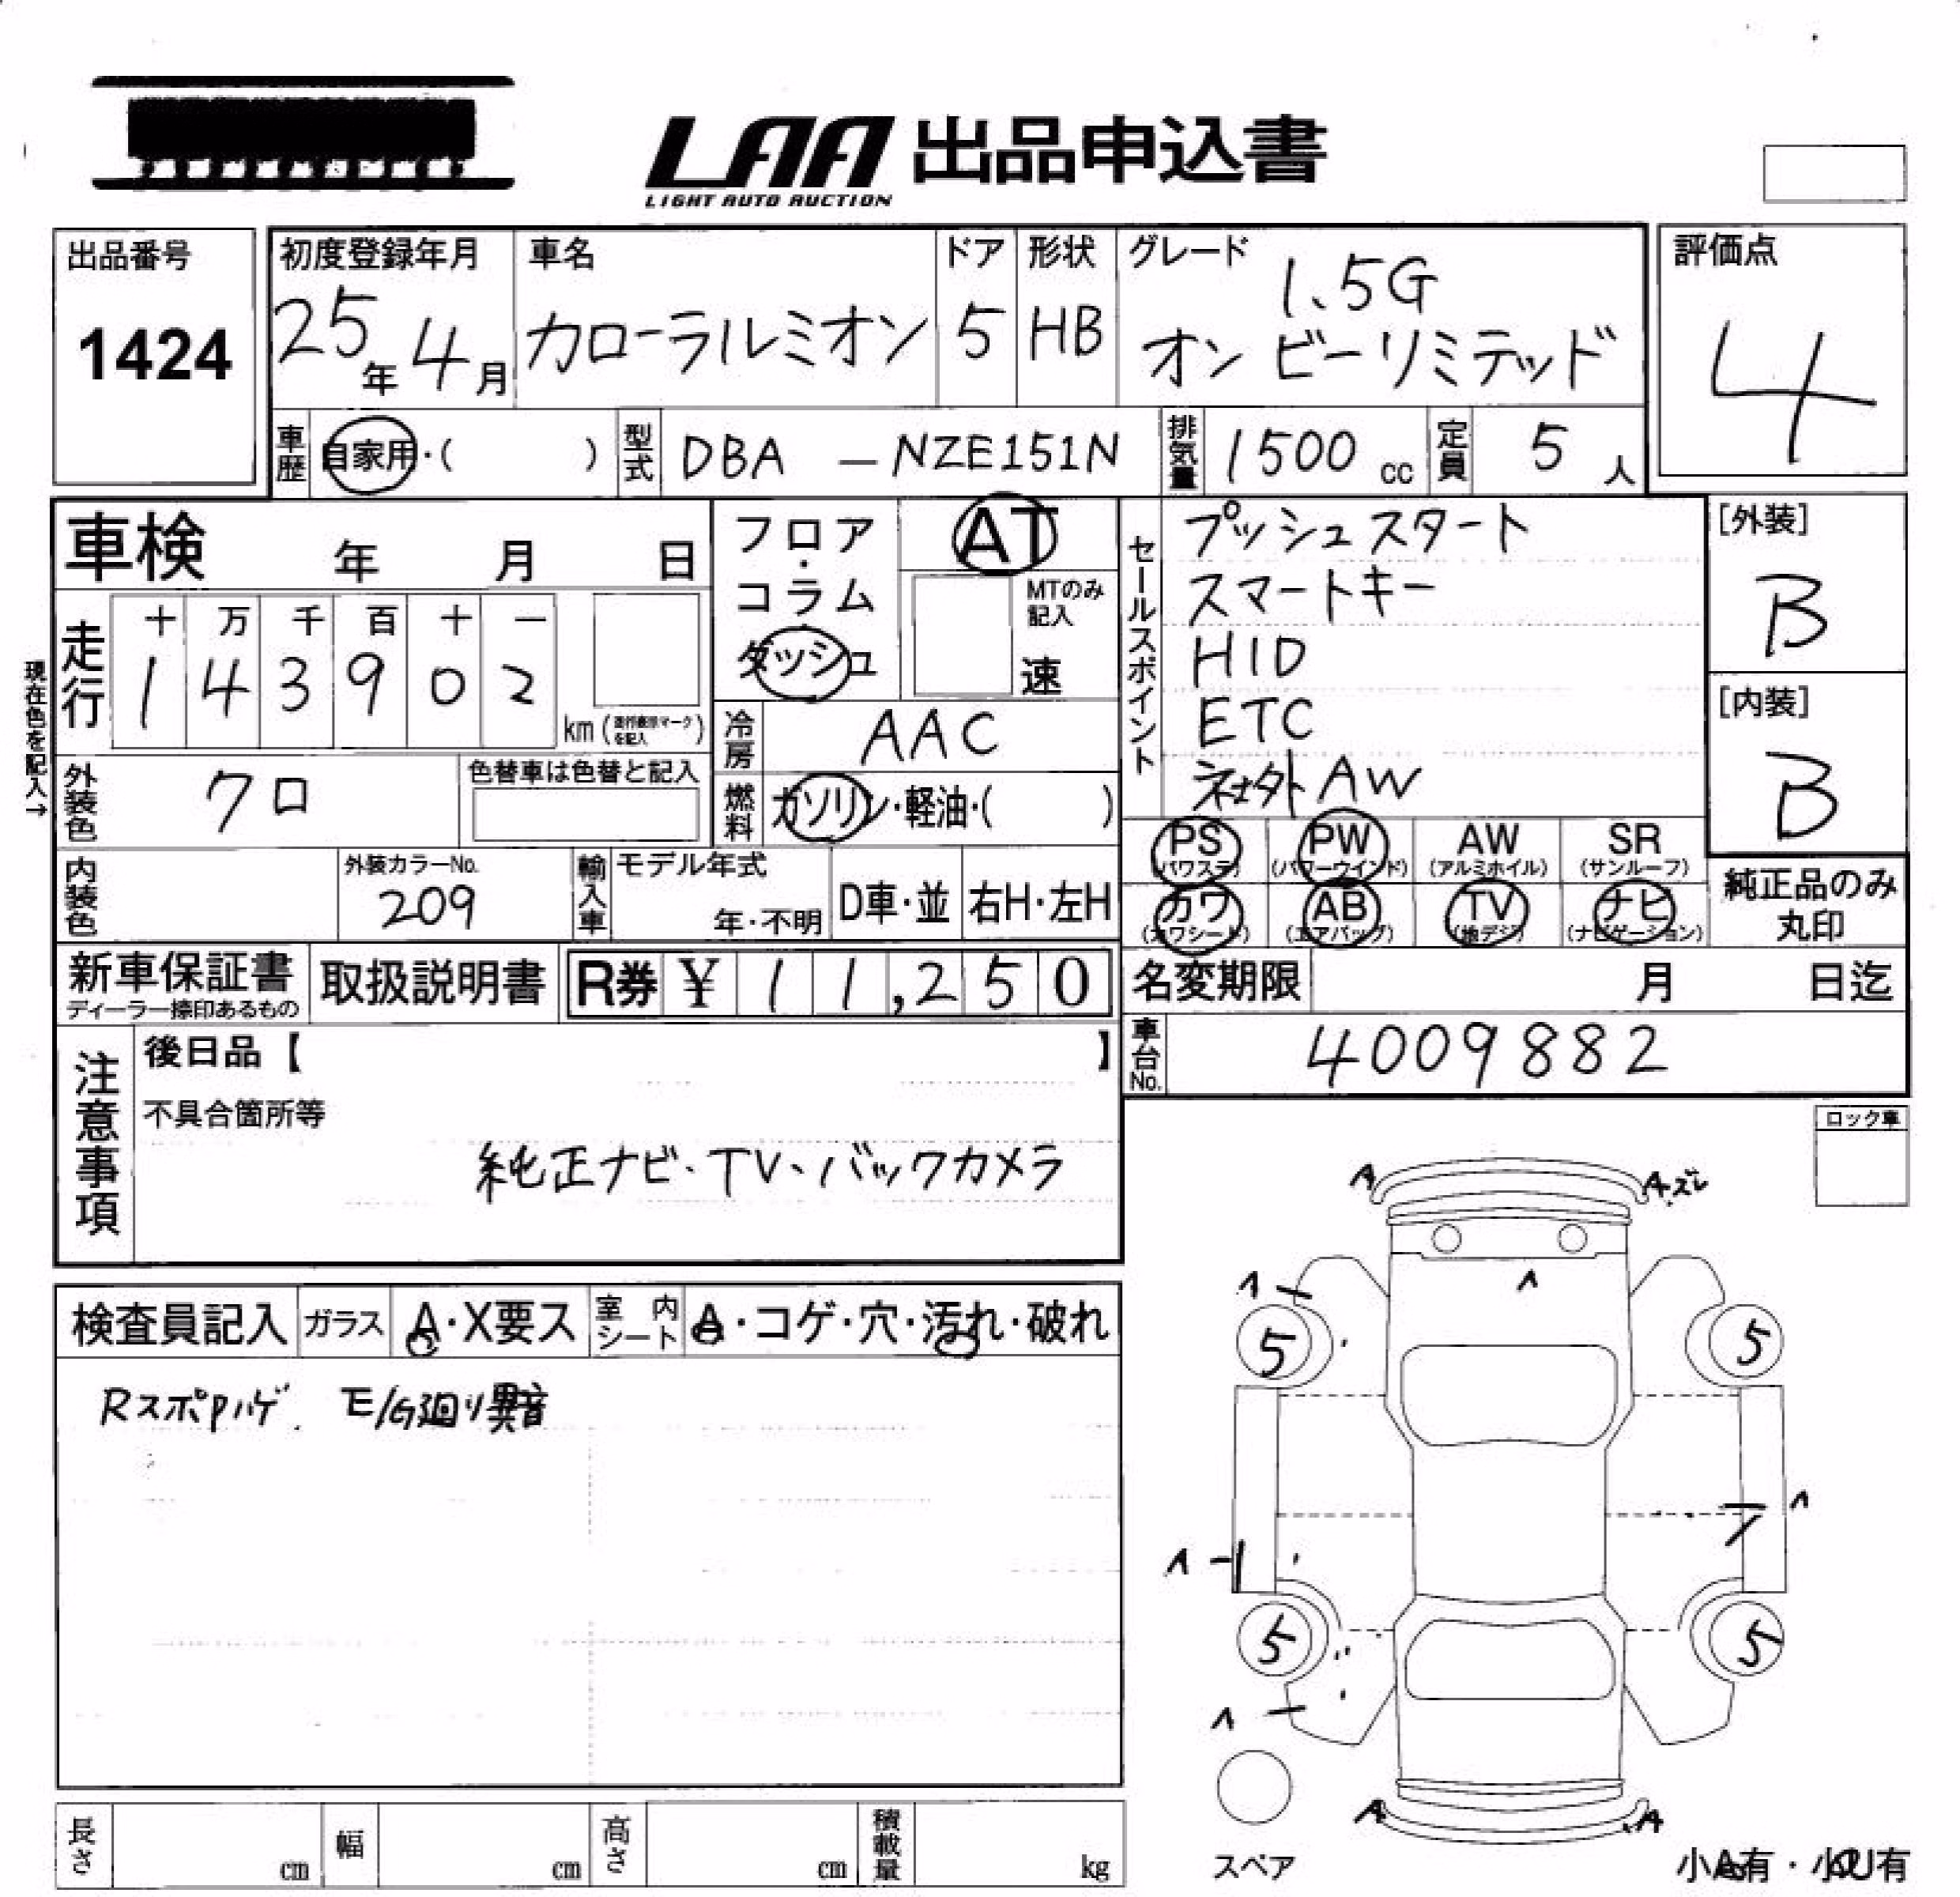 LAA 出品申込書
LIGHT AUTO AUCTION
出品番号
1424
初度登録年月
25年4月
車名
カローラルミオン
ドア
5
形状
HB
グレード
1.5G
オン ビーリミテッド
評価点
4
車歴
自家用・( )
型式
DBA — NZE151N
排気量
1500 cc
定員
5 人
車検 年 月 日
現在色を記入→
走行
十 万 千 百 十 一
1 4 3 9 0 2
km (走行表示マークを記入)
フロア・
コラム・
ダッシュ
AT
MTのみ
記入
速
冷房
AAC
燃料
ガソリン・軽油・( )
外装色
クロ
色替車は色替と記入
内装色
外装カラーNo.
209
輸入車
モデル年式
年・不明
D車・並
右H・左H
セールスポイント
プッシュスタート
スマートキー
HID
ETC
社外AW
[外装]
B
[内装]
B
PS
(パワステ)
PW
(パワーウインド)
AW
(アルミホイル)
SR
(サンルーフ)
カワ
(カワシート)
AB
(エアバッグ)
TV
(地デジ)
ナビ
(ナビゲーション)
純正品のみ
丸印
新車保証書
ディーラー捺印あるもの
取扱説明書
R券 ¥ 11,250
名変期限 月 日迄
車台No.
4009882
注意事項
後日品【 】
不具合箇所等
純正ナビ・TV・バックカメラ
ロック車
検査員記入
ガラス
A・X要ス
室内シート
A・コゲ・穴・汚れ・破れ
RスポPハゲ. E/G廻り異音
A
A.ズレ
5
5
5
5
A
A
スペア
小A有・小U有
長さ cm
幅 cm
高さ cm
積載量 kg